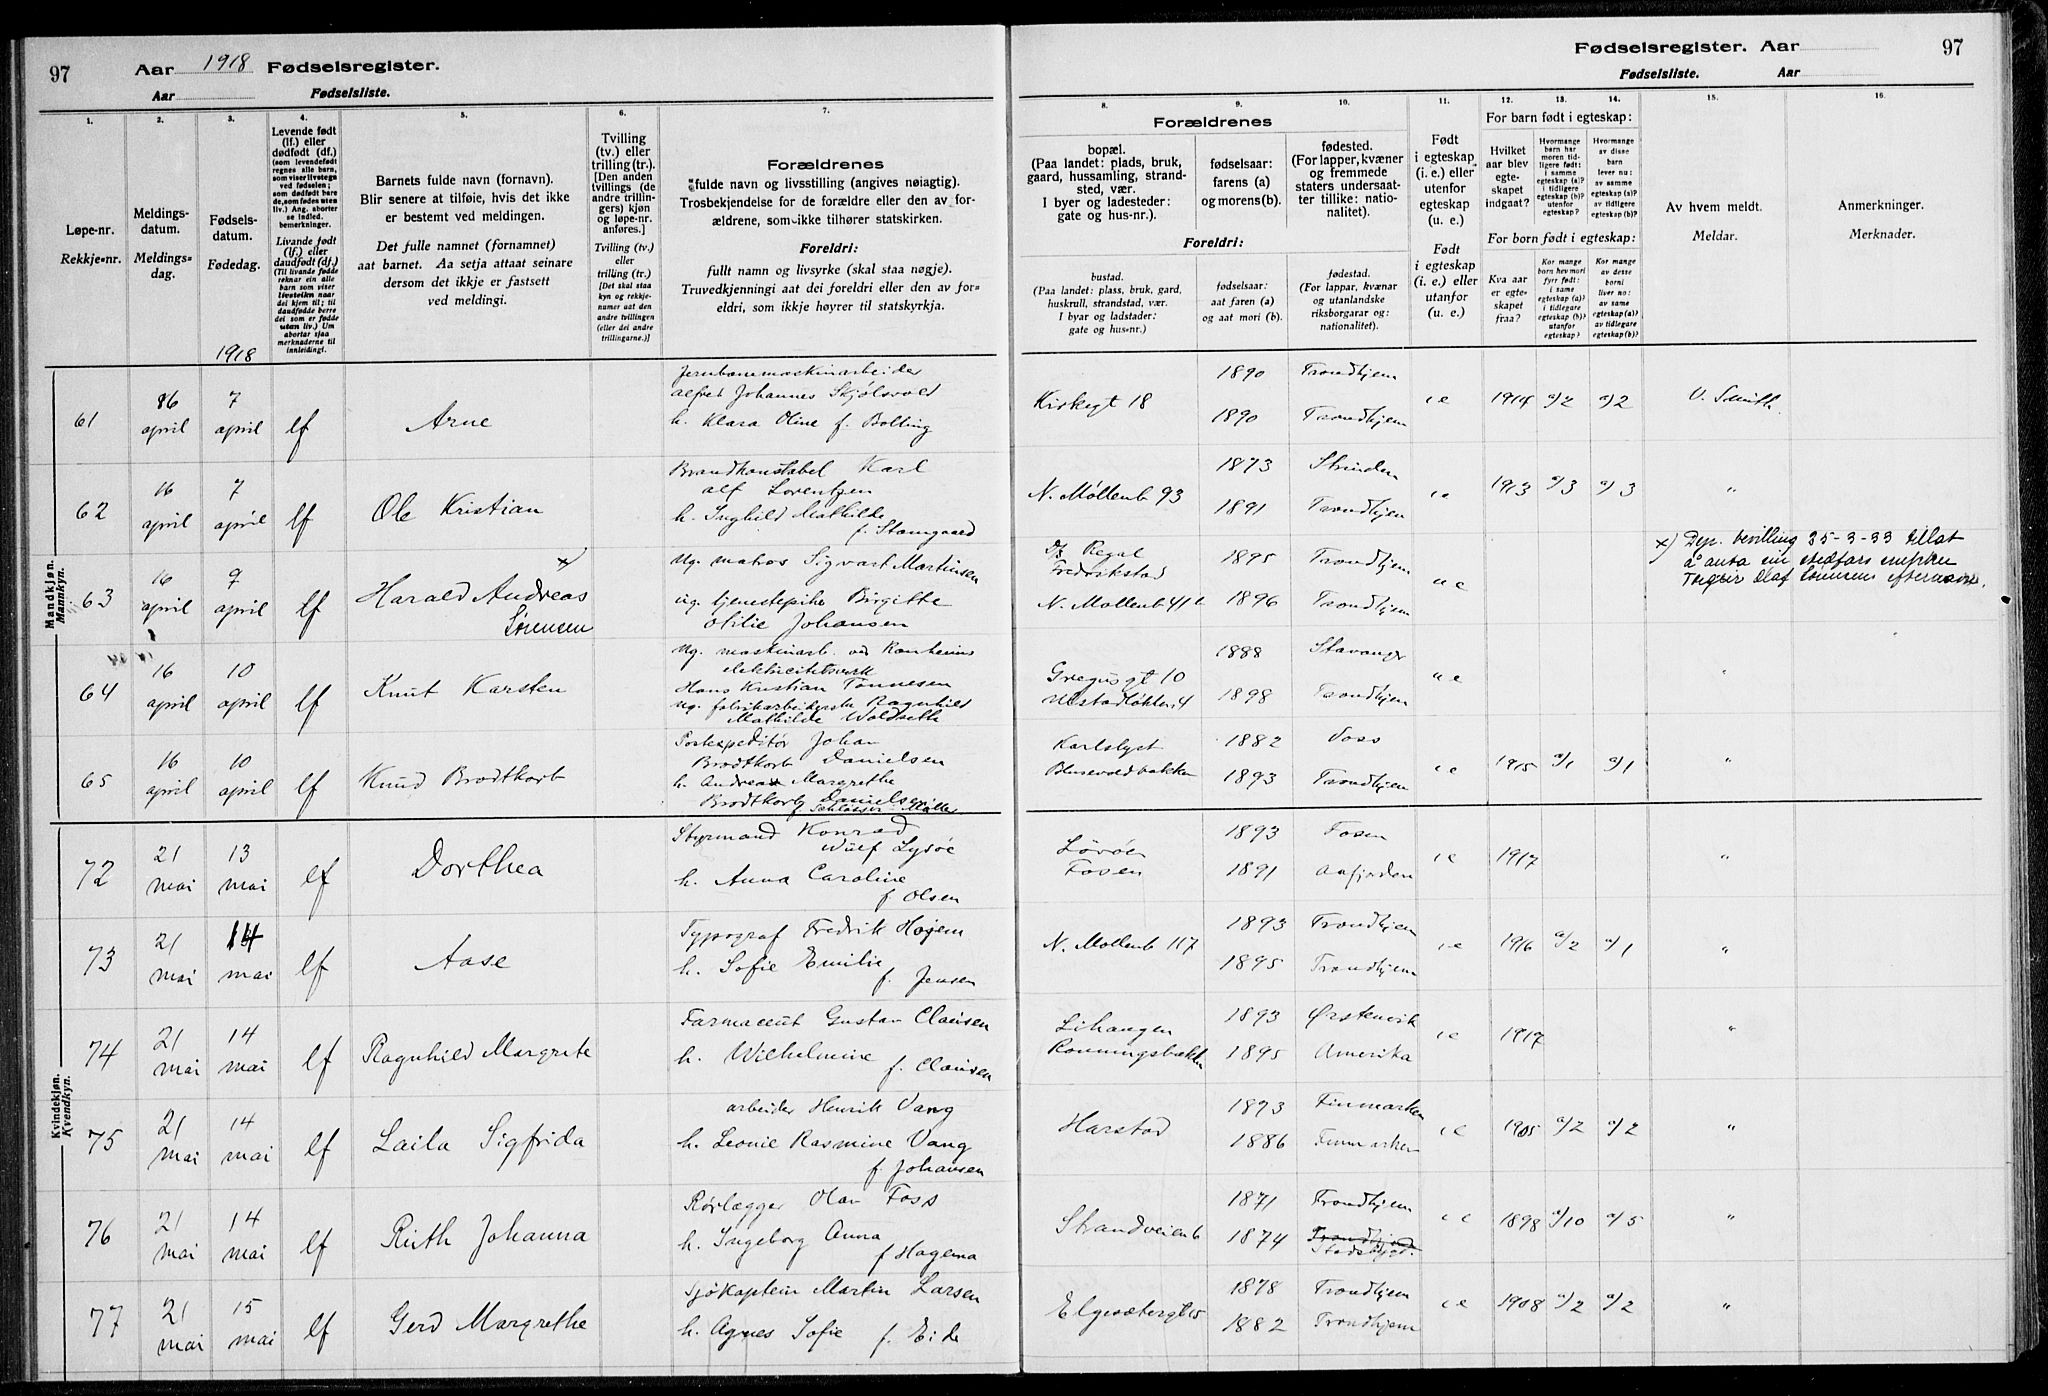 97 Aar 1918 Fødselsregister.
Aar Fødselsliste.
Fødselsregister. Aar 97
Fødselsliste. Aar
1. 2. 3. 4. 5. 6. 7.
Løpe-nr.
Rekkje-nr.
Meldings-
datum.
Meldings-
dag.
Fødsels-
datum.
Fødedag.
1918
Levende født
(lf.) eller
dødfødt (df.)
(som levendefødt
regnes alle barn,
som viser livstegn
ved fødselen;
som dødfødt bare
de, som fødes uten
liv.) Ang. aborter
se indled.
bemerkninger.
Livande født
(lf.) eller
daudfødt (df.)
(Til livande fødde
reknar ein alle
born som viser
livsteikn naar
dei kjem til; til
daudfødde berre
dei som er fødde
utan liv.) Um
abortar sjaa
merknaderne til
innleidingi.
Barnets fulde navn (fornavn).
Blir senere at tilføie, hvis det ikke
er bestemt ved meldingen.
Det fulle namnet (fornamnet)
aat barnet. Aa setja attaat seinare
dersom det ikkje er fastsett
ved meldingi.
Tvilling
(tv.) eller
trilling (tr.).
[Den anden
tvillings (de
andre trillin-
gers) kjøn
og løpe-nr.
anføres.]
Tvilling (tv.)
eller
trilling (tr.)
[Det skal staa
kyn og rekkje-
numer aat den
andre tvillingen
(eller dei andre
trillingarne.)]
Forældrenes
fulde navn og livsstilling (angives nøiagtig).
Trosbekjendelse for de forældre eller den av for-
ældrene, som ikke tilhører statskirken.
Foreldri:
fullt namn og livsyrke (skal staa nøgje).
Truvedkjenningi aat dei foreldri eller den av for-
eldri, som ikkje høyrer til statskyrkja.
8. 9. 10. 11. 12. 13. 14. 15. 16.
Forældrenes
bopæl.
(Paa landet: plads, bruk,
gaard, hussamling, strand-
sted, vær.
I byer og ladesteder:
gate og hus-nr.).
fødselsaar:
farens (a)
og morens (b).
fødested.
(For lapper, kvæner
og fremmede
staters undersaat-
ter tillike: natio-
nalitet).
Foreldri:
bustad.
(Paa landet: plass, bruk, gard,
huskrull, strandstad, vær.
I byar og ladstader:
gate og hus-nr.)
fødselsaar:
aat faren (a)
og aat mori (b).
fødestad.
(For lappar, kvænar
og utanlandske
riksborgarar og:
nationalitet).
Født
i egteskap
(i. e.) eller
utenfor
egteskap
(u. e.)
Født
i egteskap
(i. e.) eller
utanfor
(u. e.)
For barn født i egteskap:
Hvilket
aar blev
egte-
skapet
indgaat?
Hvormange
barn har
moren tid-
ligere født:
i samme
egteskap (a)?
i tidligere
egteskap (b)?
utenfor
egteskap?
Hvormange
av disse
barn
lever nu:
av samme
egteskap (a)?
av tidligere
egteskap (b)?
For born født i egteskap:
Kva aar
er egte-
skapet
fraa?
Kor mange
born hev mori
fyrr født:
i same
egteskap (a)?
i tidlegare
egteskap (b)?
utanfor
egteskap?
Kor mange
av desse
borni
liver no:
av same
egteskap (a)?
av tidlegare
egteskap (b)?
Av hvem meldt.
Meldar.
Anmerkninger.
Merknader.
Mandkjøn.
Mannkyn.
61 16 april 7 april lf Arne
Jernbanemaskinarbeider
Alfred Johannes Skjølsvold
h. Klara Oline f. Bolling
Kirkegt 18 1890 Trondhjem i e 1914 a/2 a/2 V. Smith
1890 Trondhjem
62 16 april 7 april lf Ole Kristian
Brandkonstabel Karl
Alf Lorentzen
h. Inghild Mathilde
f. Stamgaard
N. Møllenb 93 1873 Strinden i e 1913 a/3 a/3 "
1891 Trondhjem
63 16 april 9 april lf Harald Andreas x
Sørensen
Ug. matros Sigvart Martinsen
ug. tjenestepike Birgitte
Otilie Johansen
D/S Regal
Fredrikstad 1895 Trondhjem u e
N. Møllenb 41 1896 Trondhjem
x) Dep. bevilling 25-3-33 tillat
å anta sin stedfars
Torgeir Olaf Sørensens efternavn.
64 16 april 10 april lf Knut Karsten
Ug. maskinarb. ved Ranheims
elektricitetsverk
Hans Kristian Tønnesen
ug. fabrikarbeiderske Ragnhild
Mathilde Woldseth
Gregusgt 10 1888 Stavanger u e "
1898 Trondhjem
65 16 april 10 april lf Knud Brodtkorb
Postexpeditør Johan
Brodtkorb Danielsen
h. Andrea Margrethe
Brodtkorb Danielsen
f. Schlösser Møller
Karlslyst 1882 Voss i e 1915 a/1 a/1 "
1893 Trondhjem
Kvindekjøn.
Kvendkyn.
72 21 mai 13 mai lf Dorthea
Styrmand Konrad
Wulf Lysøe
h. Anna Caroline
f Olsen
Fosen 1893 Fosen i e 1917 "
1891 Aafjorden
73 21 mai 14 mai lf Aase
Typograf Fredrik Høyem
h. Sofie Emilie
f. Jensen
N. Møllenb 117 1893 Trondhjem i e 1916 a/2 a/1 "
1895 Trondhjem
74 21 mai 14 mai lf Ragnhild Margrete
Farmaceut Gustav Clausen
h. Wilhelmine
f. Clausen
Lihaugen
Rønningsbakken 1893 Ørstenvik i e 1917 "
1895 Amerika
75 21 mai 14 mai lf Laila Sigfrida
arbeider Henrik Vang
h. Leonie Rasmine Vang
f. Johansen
Harstad 1893 Finmarken i e 1905 a/2 a/2 "
1886 Finmarken
76 21 mai 14 mai lf Ruth Johanna
Rørlægger Olav Foss
h. Ingeborg Anna
f Hagema
Strandveien 6 1871 Trondhjem i e 1898 a/10 a/5 "
1874 Trondhjem
Stadsbygd.
77 21 mai 15 mai lf Gerd Margrethe
Sjökaptein Martin Larsen
h. Agnes Sofie f. Eide
Elgesætergt 15 1878 Trondhjem i e 1908 a/2 a/2 "
1882 Trondhjem